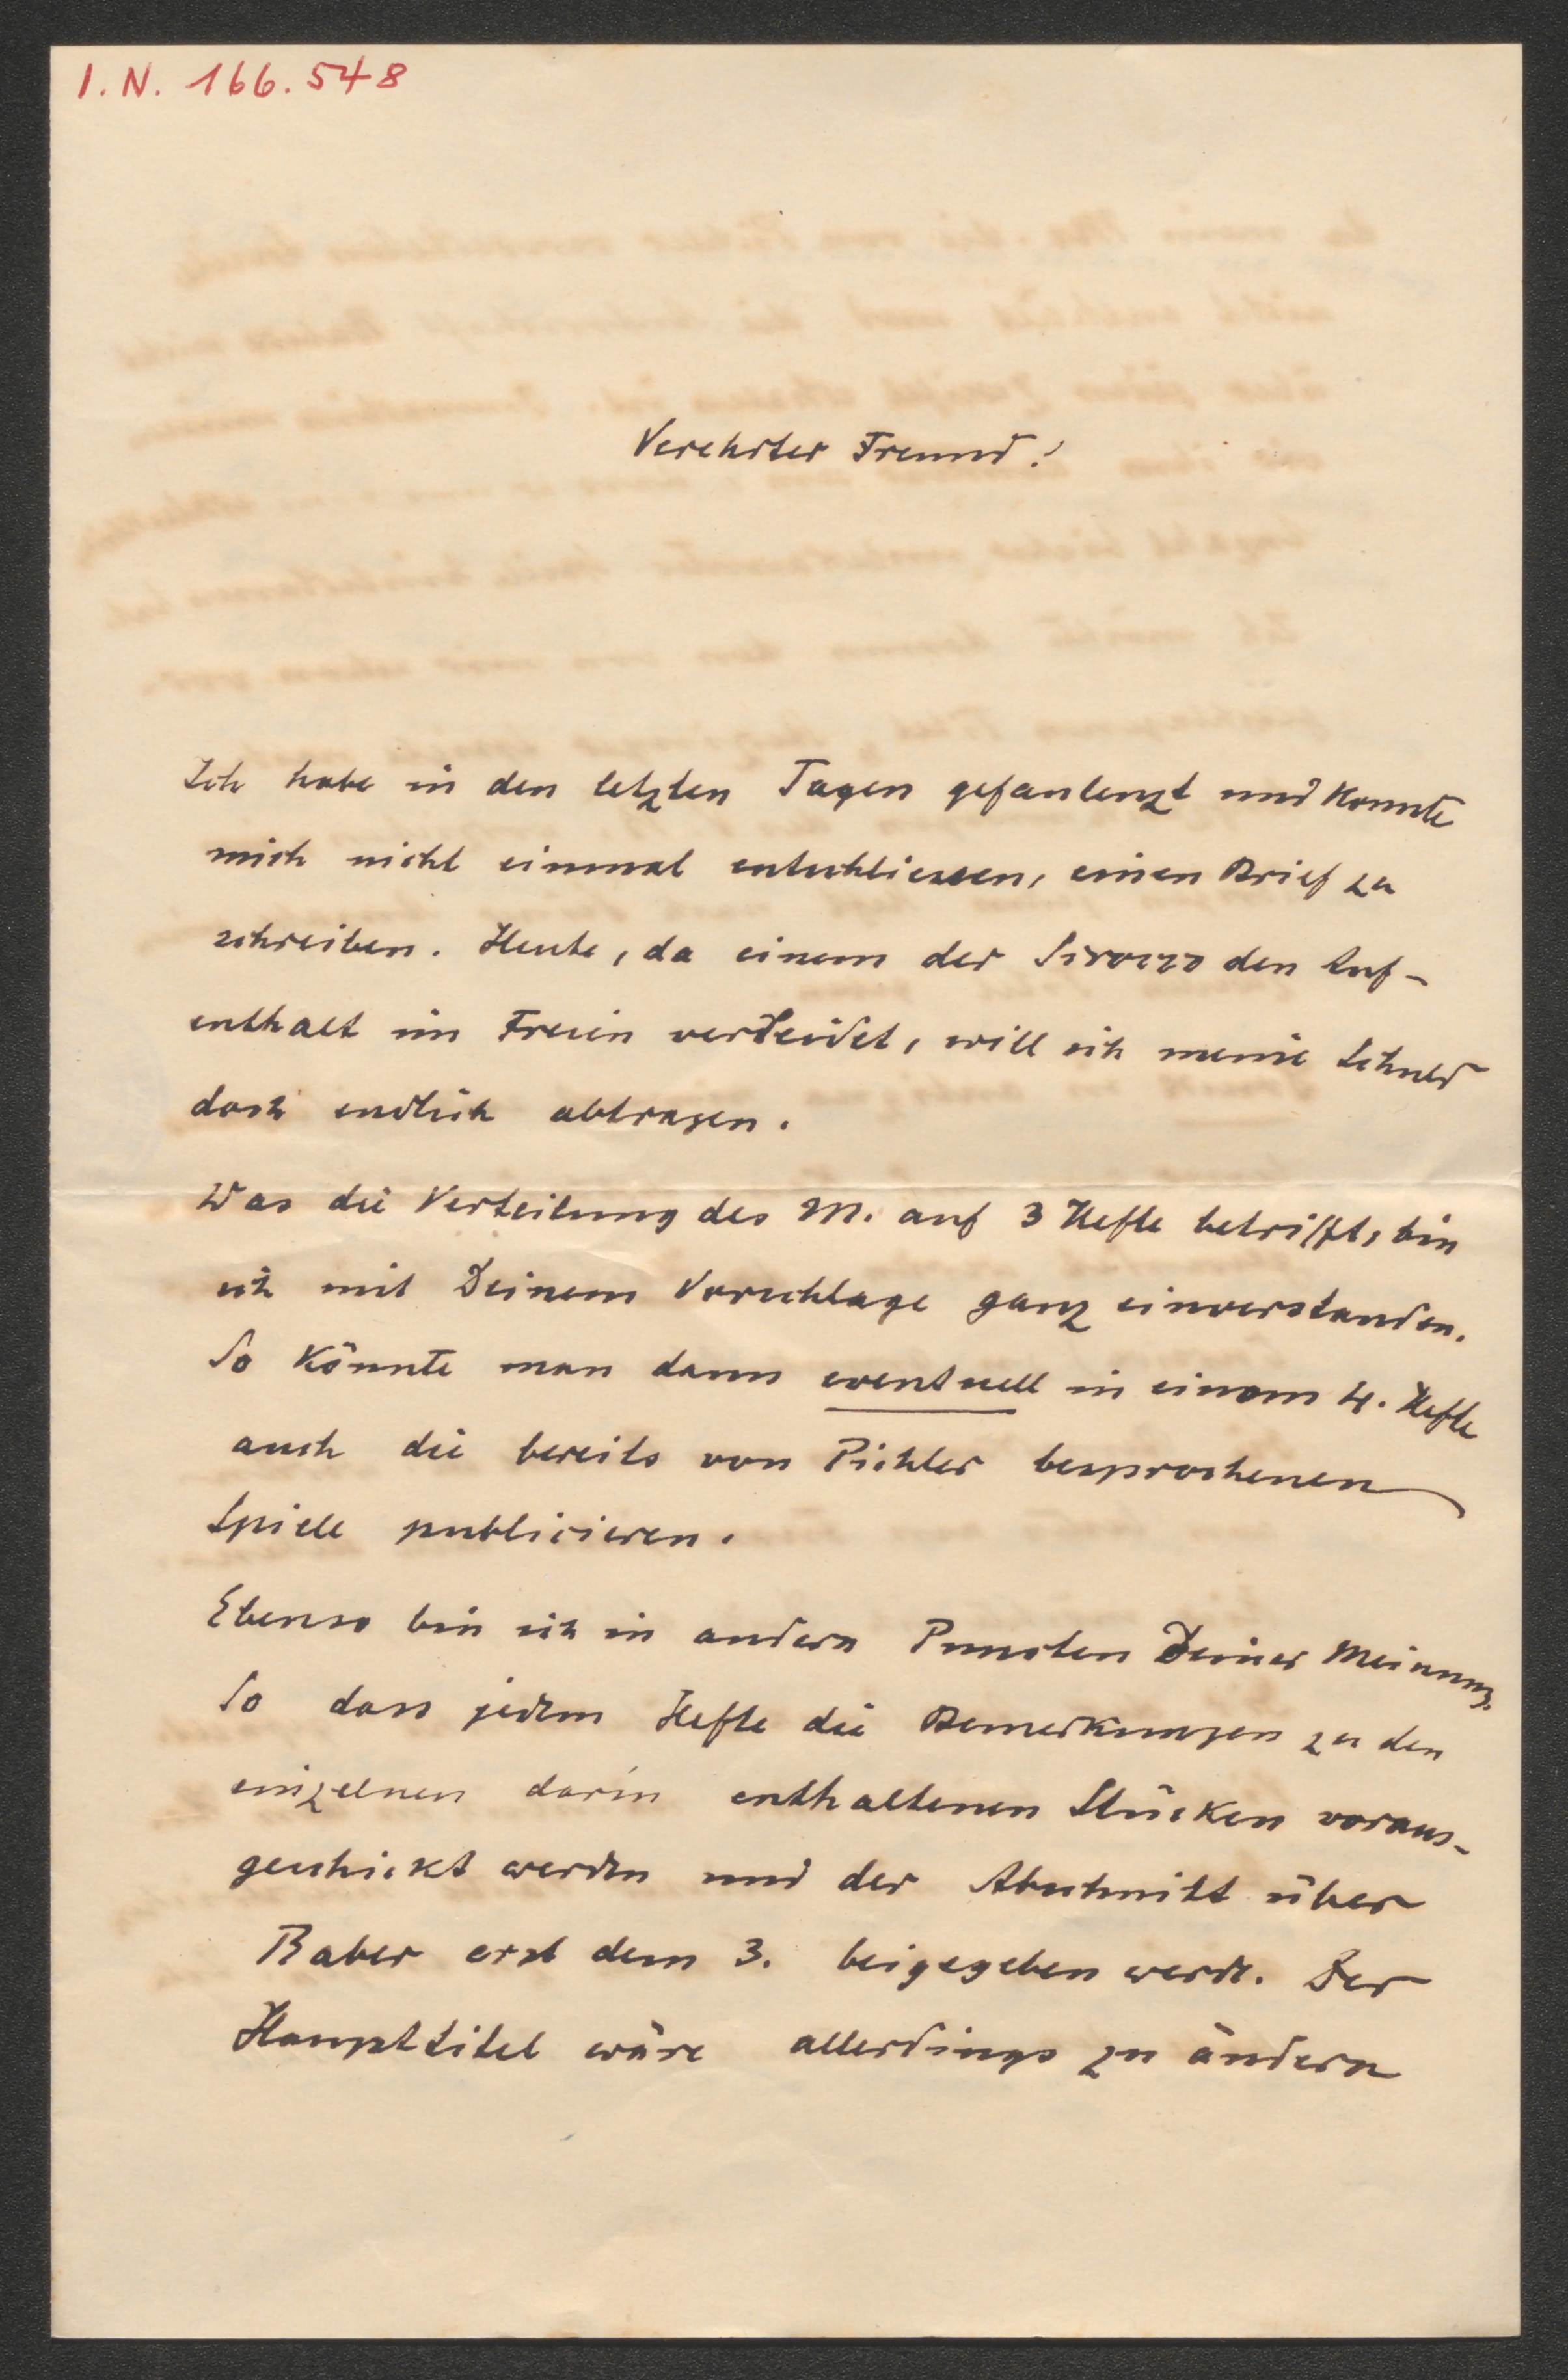 I.N. 166.548
Verehrter Freund!
Ich habe in den letzten Tagen gefaulenzt und konnte
mich nicht einmal entschliessen, einen Brief zu
schreiben. Heute, da einem der Sirocco den Auf-
enthalt im Freien verleidet, will ich meine Schuld
doch endlich abtragen.
Was die Verteilung des M. auf 3 Hefte betrifft, bin
ich mit Deinem Vorschlage ganz einverstanden.
So könnte man dann eventuell in einem 4. Hefte
auch die bereits von Pichler besprochenen
Spiele publicieren.
Ebenso bin ich in andern Puncten Deiner Meinung.
So dass jedem Hefte die Bemerkungen zu den
einzelnen darin enthaltenen Stücken voraus-
geschickt werden und der Abschnitt über
Raber erst dem 3. beigegeben werde. Der
Haupttitel wäre allerdings zu ändern